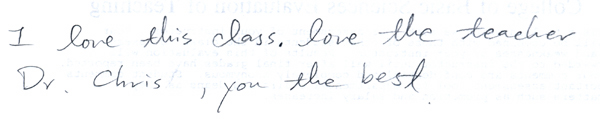 I love this class. love the teacher
Dr. Chris, you the best.